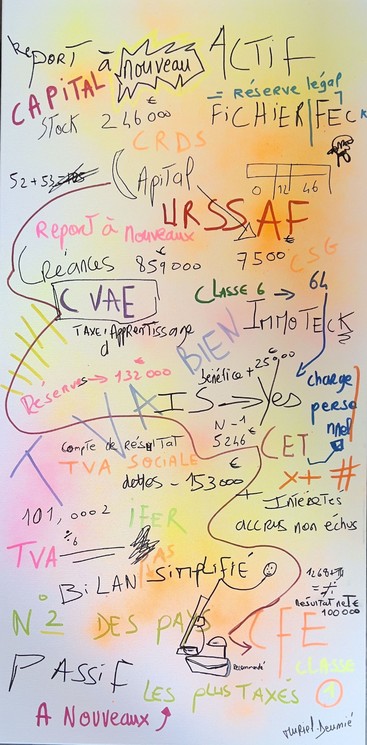 REPORT à nouveau ACTIF
CAPITAL
= Réserve légal
STOCK 246 000 €
FiCHIER FEC
CRDS
52 + 53
Capital
0 12 46
URSSAF
REPORT à NouveauX
7500 €
CSG
Créances 859 000 €
CLASSE 6 → 64
CVAE
TAXE d'Apprentissage
IMMOTECK
BIEN
Réserves → 132 000 €
bénéfice + 25 000 €
charge
personnel
TVA
IS → Yes
N - 1
5246 €
Compte de résultat
CET
TVA SOCIALE
dettes - 153 000 €
x + #
+ Intérêtes
accrus non échus
101, 0002
iFER
TVA
BiLAN SIMPLIFIÉ
Résultat net €
100 000
N° 2 DES PAYS
CFE
PASSIF
CLASSE
1
LES PLUS TAXÉS
A NouveauX